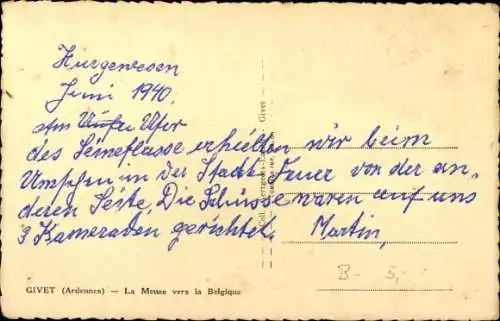 Hiergewesen
Juni 1940,
am Ufer
des Seineflusse erhielten wir beim
in der Stadt Feuer von der an-
deren Seite. Die Schüsse waren auf uns
3 Kameraden gerichtet. Martin,
B- 5,-
GIVET (Ardennes) — La Meuse vers la Belgique